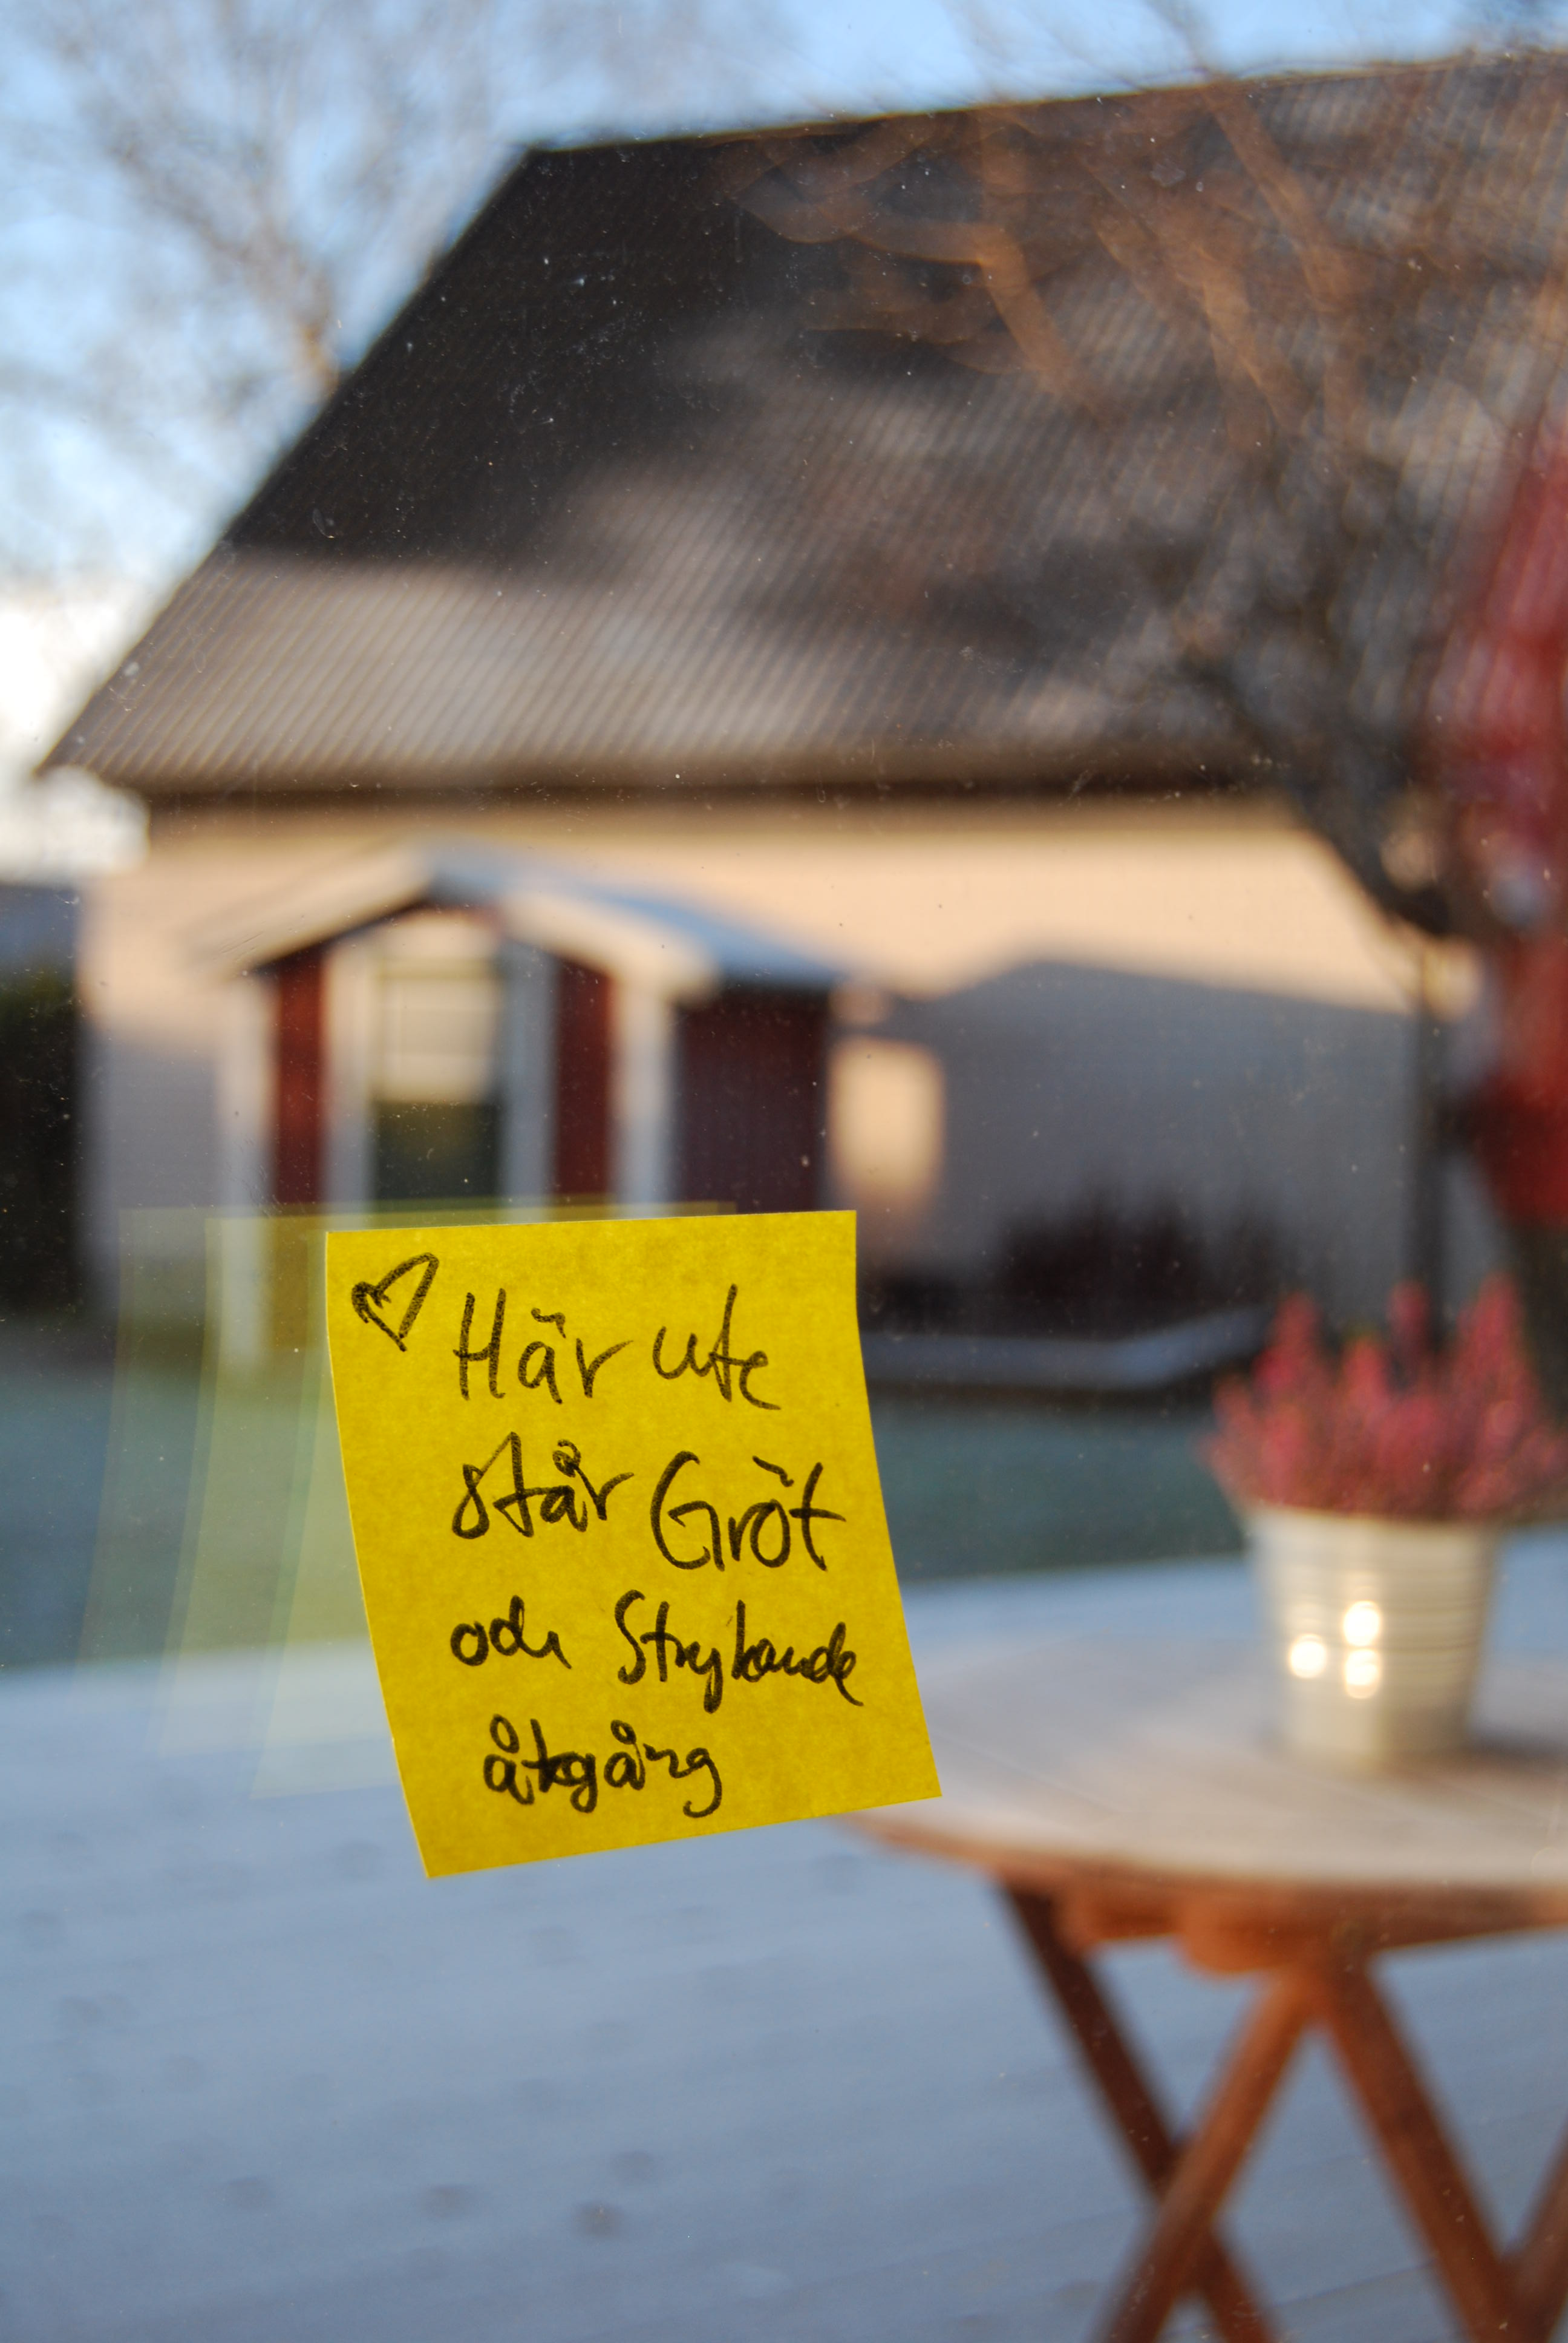 Här ute
står Gröt
och Strykande
åtgång